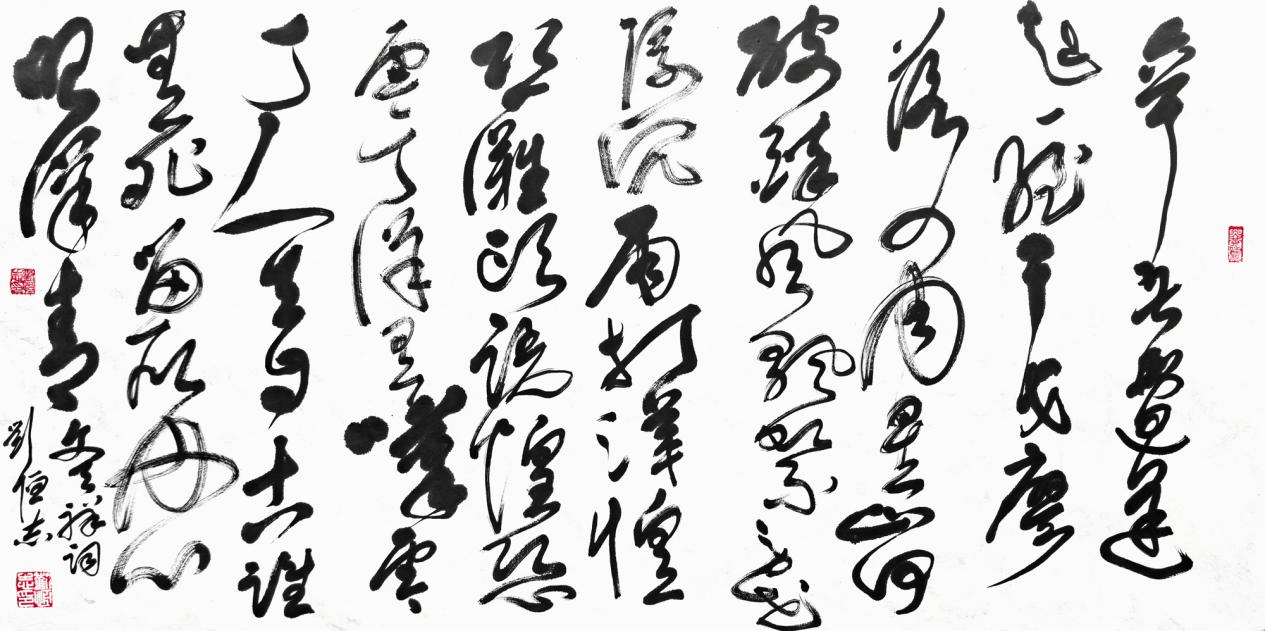 辛苦遭逢
起一經干戈寥
落四周星山河
破碎風飄絮身世
浮沉雨打萍惶
恐灘頭說惶恐
零丁洋里嘆零
丁人生自古誰
無死留取丹心
照汗青
文天祥詞
劉恒志